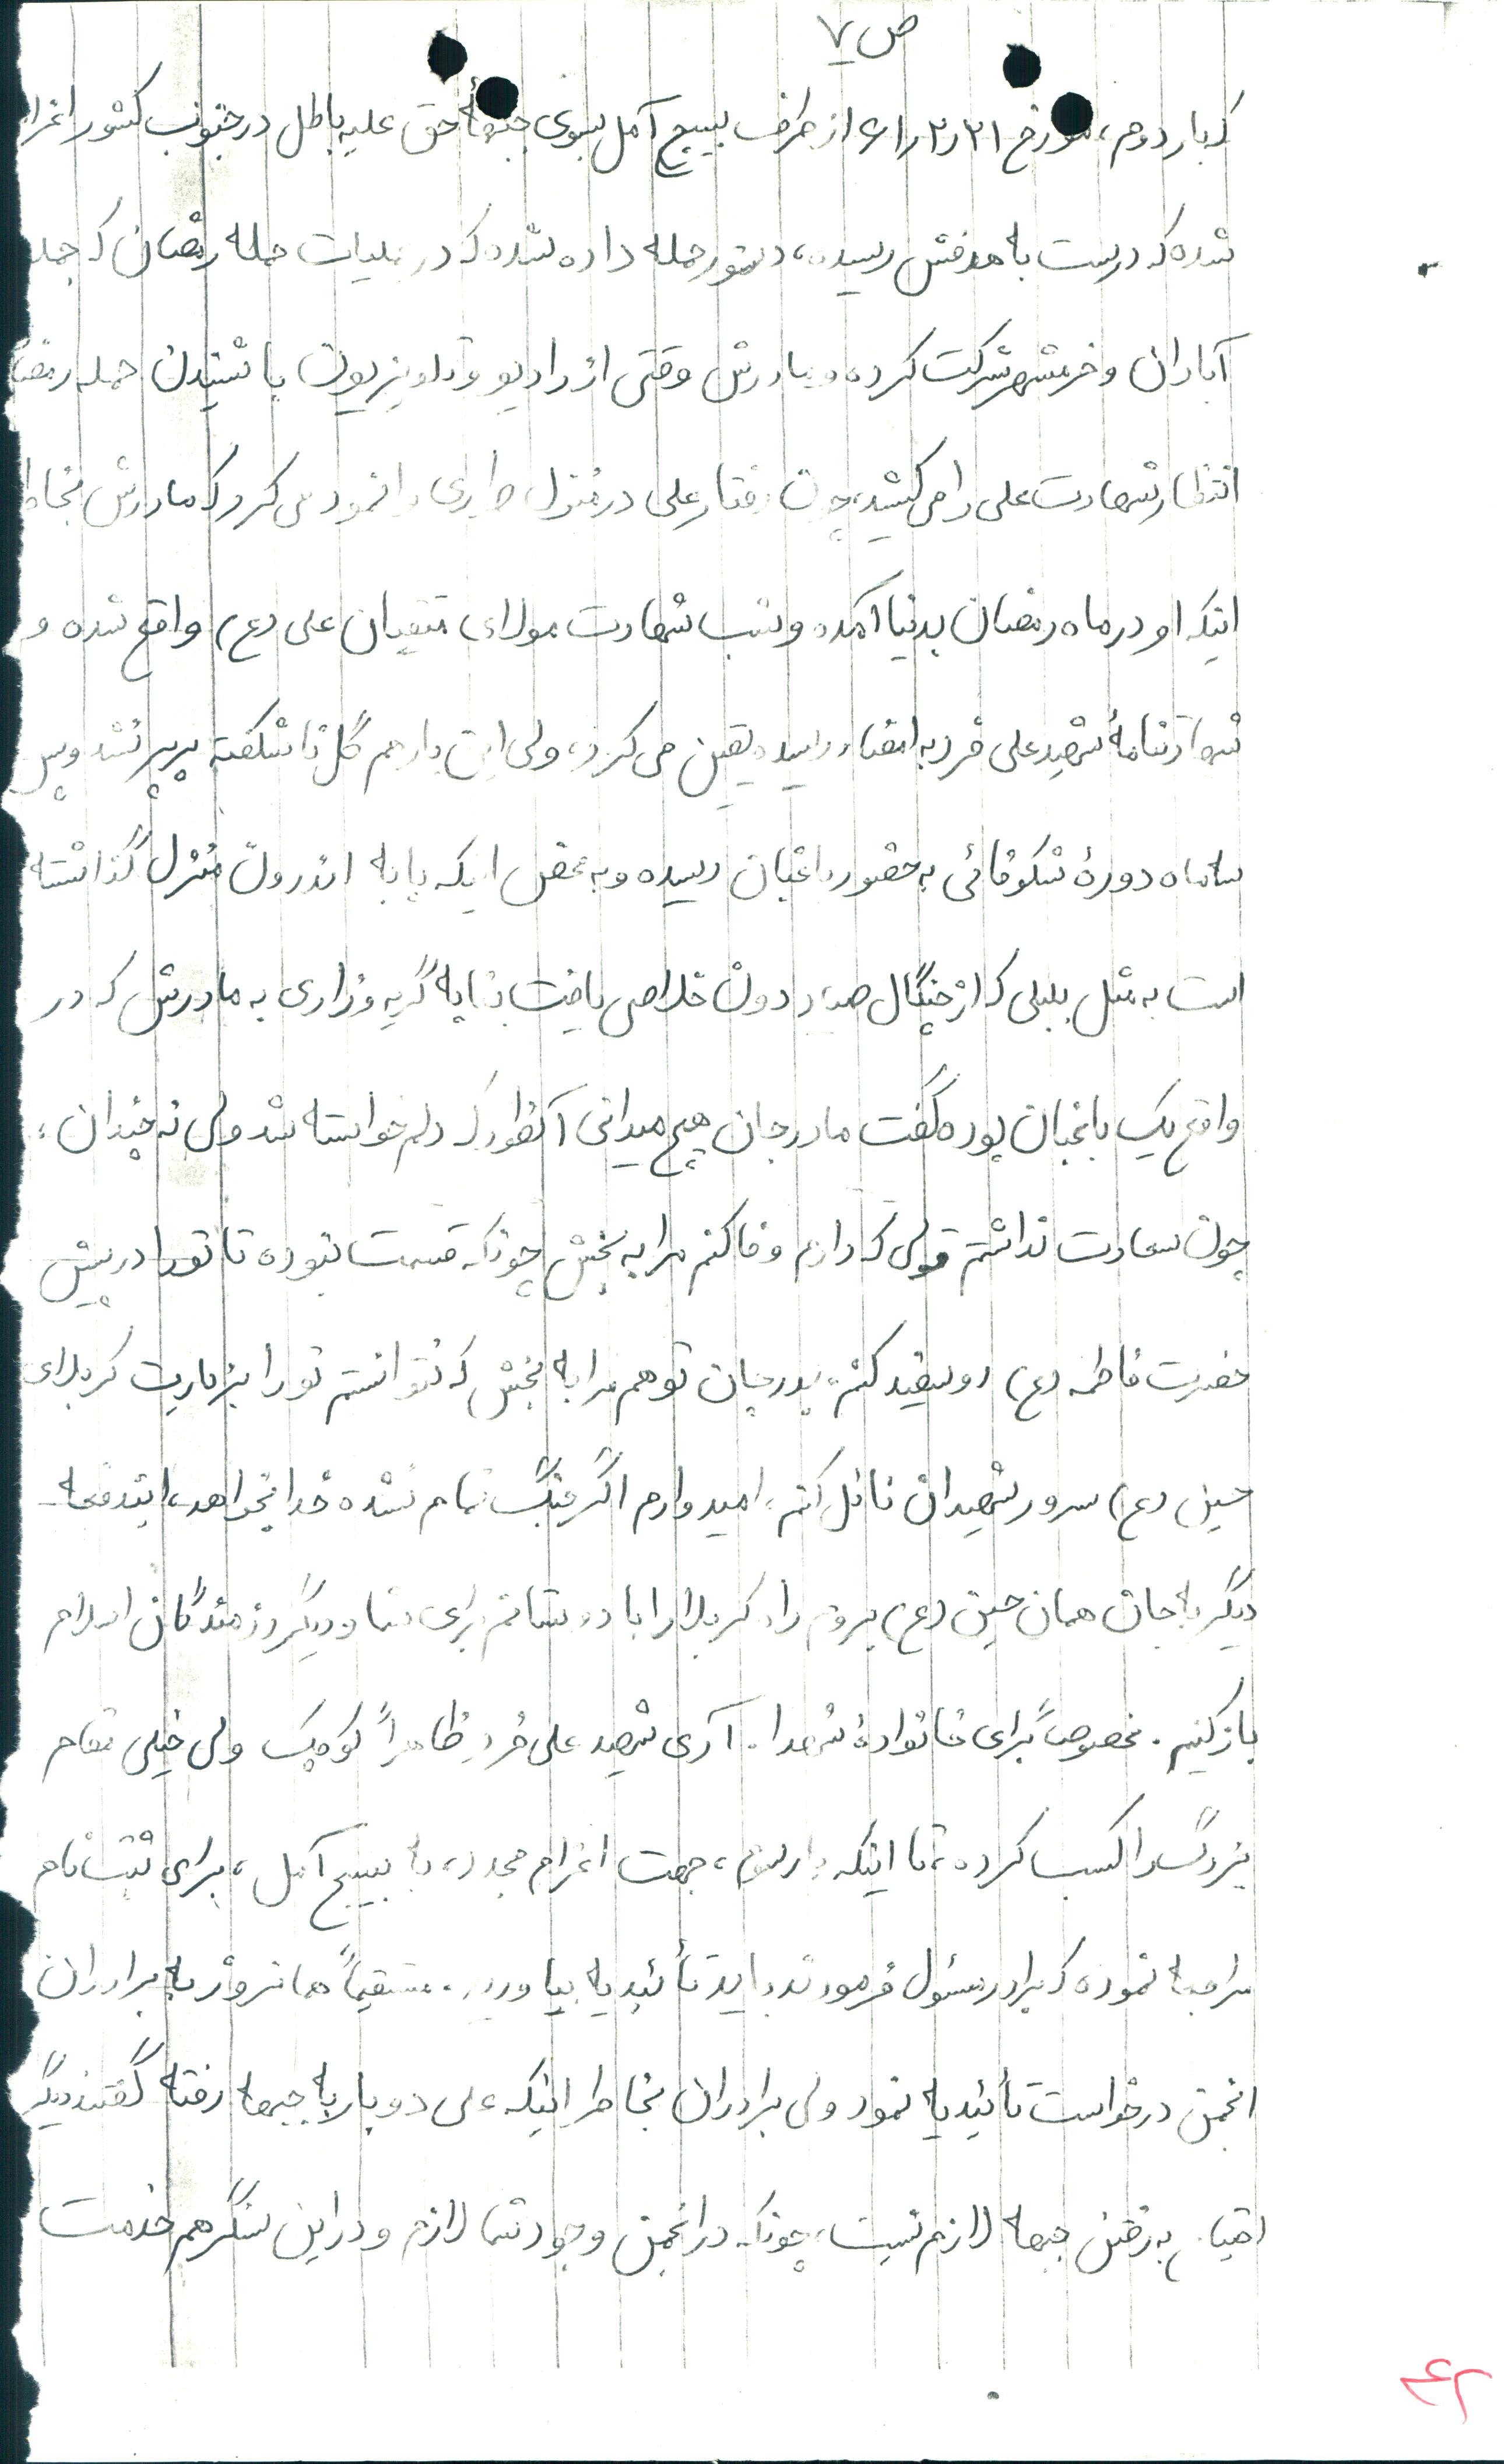 ص ۷
که بار دوم، مورخ ۶۱٫۳٫۲۱ از طرف بسیج آمل بسوی جبههٔ حق علیه باطل در جنوب کشور اعزام
شده که درست به هدفش رسیده، دستور حمله داده شده که در عملیات حمله رمضان که جمله
آبادان و خرمشهر شرکت کرده و مادرش وقتی از رادیو و تلویزیون با شنیدن حمله رمضان
انتظار شهادت علی را می کشید چون رفتار علی در منزل طوری وانمود می کرد که مادرش بخاطر
اینکه او در ماه رمضان بدنیا آمده و شب شهادت مولای متقیان علی (ع) واقع شده و
شهادتنامهٔ شهید علی فرد به امضاء رسیده یقین می کرد، ولی این بار هم گل ناشکفته پرپر نشد و پس
سه ماه دورهٔ شکوفائی به حضور باغبان رسیده و به محض اینکه پا به اندرون منزل گذاشته
است به مثل بلبلی که از چنگال صیاد دون خلاصی یافت بنا به گریه و زاری به مادرش که در
واقع یک باغبان بوده گفت مادر جان هیچ میدانی آنطور که دلم خواسته شد ولی نه چندان،
چون سعادت نداشتم قولی که دارم وفا کنم مرا به بخش چونکه قسمت نبوده تا تو را در پیش
حضرت فاطمه (ع) روسفید کنم. پدر جان تو هم مرا به بخش که نتوانستم تو را بزیارت کربلای
حسین (ع) سرور شهیدان نائل کنم، امیدوارم اگر جنگ تمام نشده خدا بخواهد، ایندفعه
دیگر به جان همان حسین (ع) بروم راه کربلا را با دوستانم برای شما و دیگر رزمندگان اسلام
باز کنیم. مخصوصاً برای خانوادهٔ شهدا. آری شهید علی فرد ظاهراً کوچک ولی خیلی مقام
بزرگ را کسب کرده، تا اینکه بار سوم، جهت اعزام مجدد، به بسیج آمل، برای ثبت نام
مراجعه نموده که برادر مسئول فرمودند باید تأئیدیه بیاورید، مستقیماً همانروز به برادران
انجمن درخواست تأئیدیه نمود ولی برادران بخاطر اینکه علی دو بار به جبهه رفته گفتند دیگر
احتیاج به رفتن جبهه لازم نیست، چونکه در انجمن وجود شما لازم و در این سنگر هم خدمت
۴۲